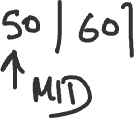 50 / 601
↑
MID